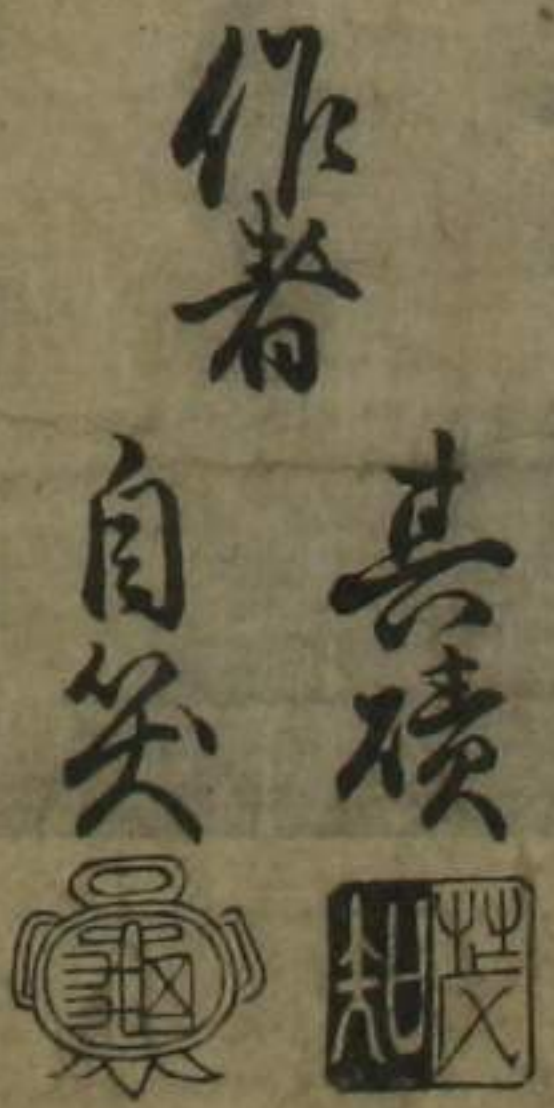 作者
其磧
自笑